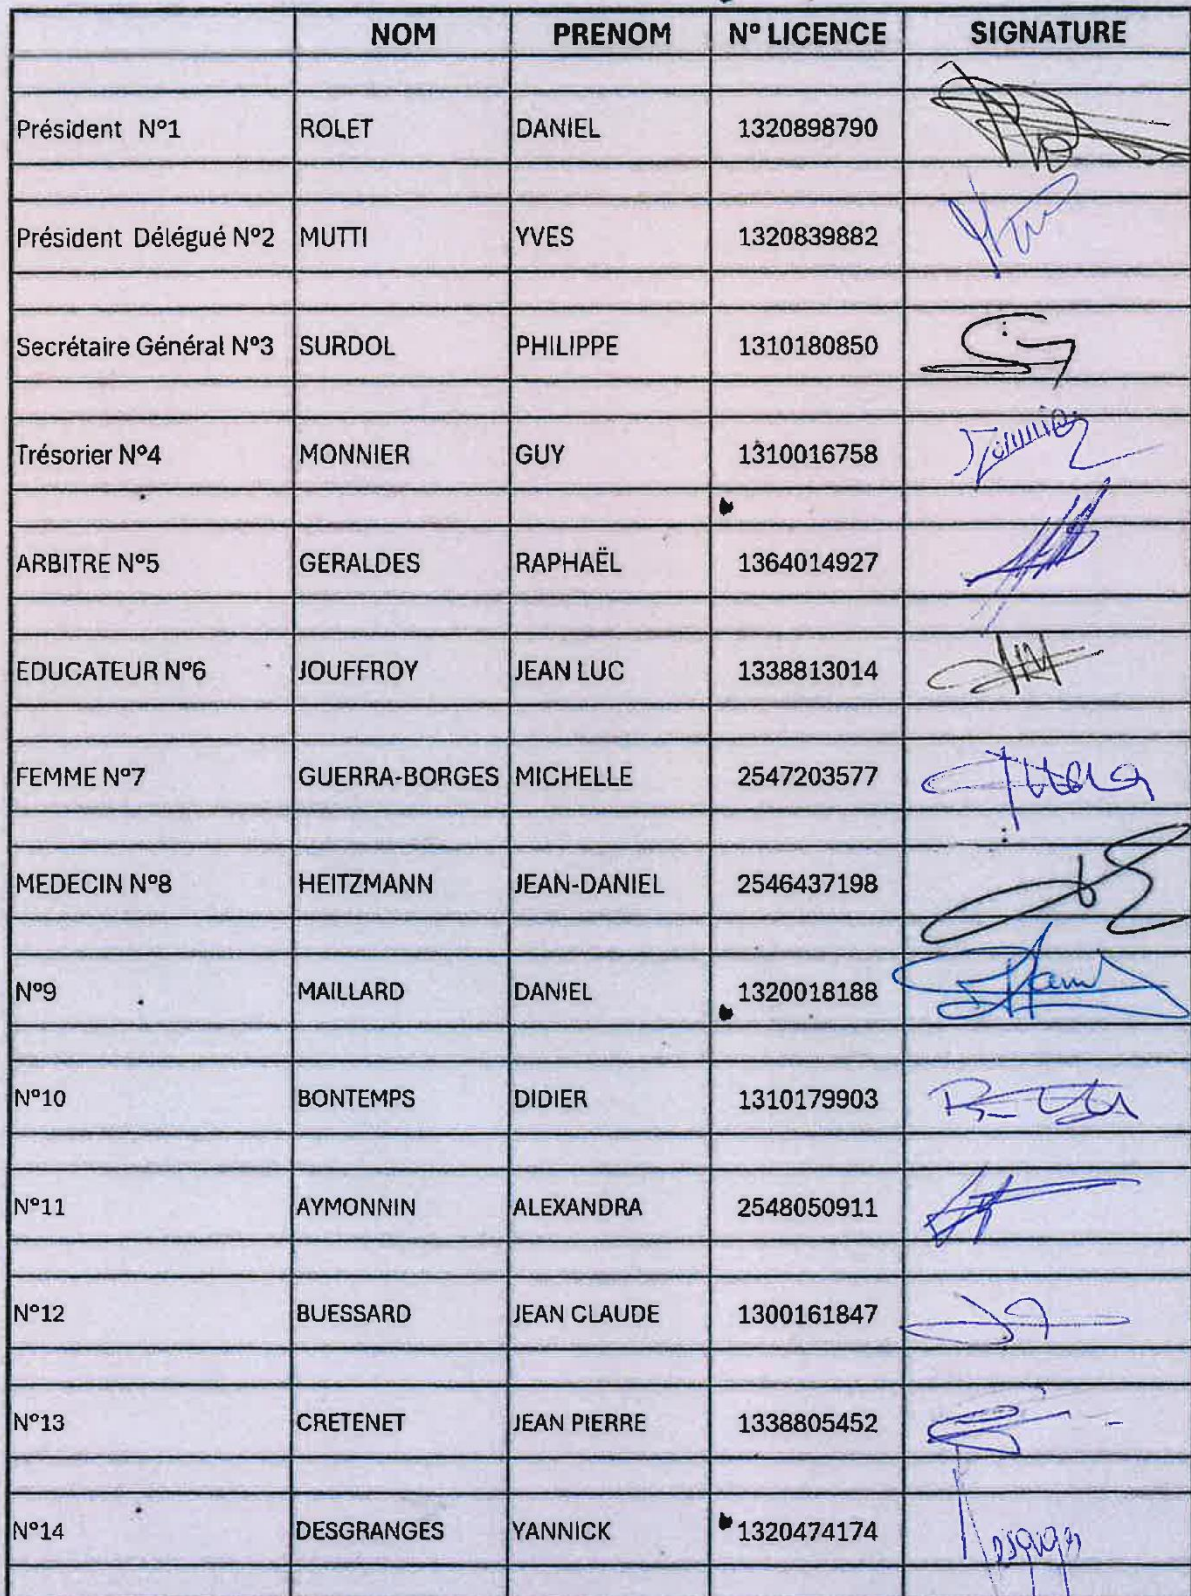 NOM PRENOM Nº LICENCE SIGNATURE
Président Nº1 ROLET DANIEL 1320898790
Président Délégué Nº2 MUTTI YVES 1320839882
Secrétaire Général Nº3 SURDOL PHILIPPE 1310180850
Trésorier Nº4 MONNIER GUY 1310016758
ARBITRE Nº5 GERALDES RAPHAËL 1364014927
EDUCATEUR Nº6 JOUFFROY JEAN LUC 1338813014
FEMME Nº7 GUERRA-BORGES MICHELLE 2547203577
MEDECIN Nº8 HEITZMANN JEAN-DANIEL 2546437198
Nº9 MAILLARD DANIEL 1320018188
Nº10 BONTEMPS DIDIER 1310179903
Nº11 AYMONNIN ALEXANDRA 2548050911
Nº12 BUESSARD JEAN CLAUDE 1300161847
Nº13 CRETENET JEAN PIERRE 1338805452
Nº14 DESGRANGES YANNICK 1320474174